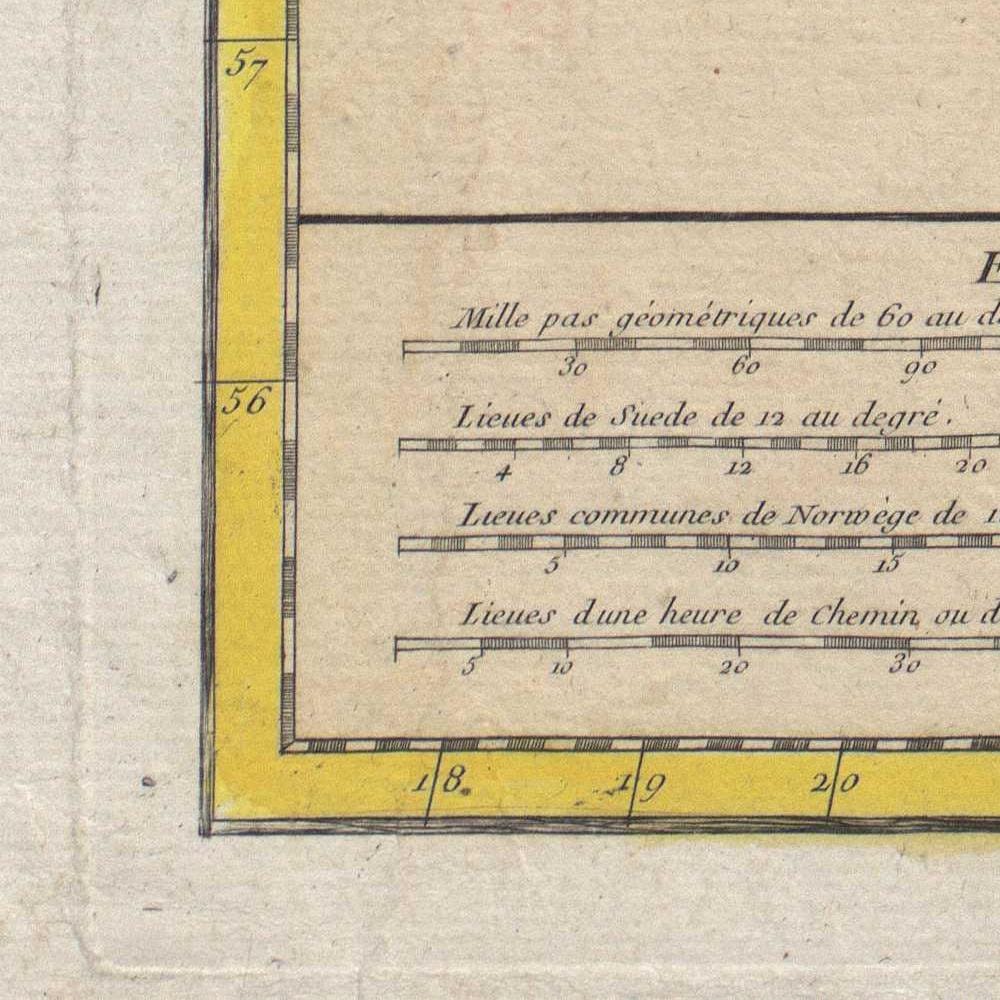 57
E
Mille pas géométriques de 60 au
30 60 90
56
Lieues de Suede de 12 au degré.
4 8 12 16 20
Lieues communes de Norwège de
5 10 15
Lieues dune heure de Chemin ou
5 10 20 30
18 19 20